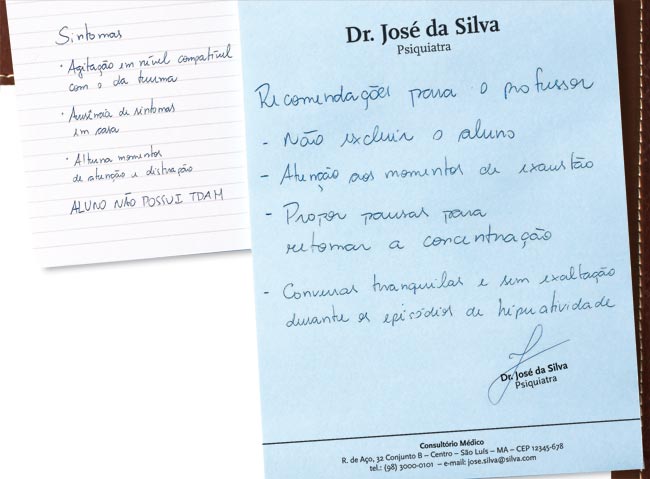 Sintomas
• Agitação em nível compatível
com o da turma
• Ausência de sintomas
em casa
• Alterna momentos
de atenção e distração
ALUNO NÃO POSSUI TDAH
Dr. José da Silva
Psiquiatra
Recomendações para o professor
- Não excluir o aluno
- Atenção aos momentos de exaustão
- Propor pausas para
retomar a concentração
- Conversas tranquilas e sem exaltação
durante os episódios de hiperatividade
Dr. José da Silva
Psiquiatra
Consultório Médico
R. de Aço, 32 Conjunto B – Centro – São Luís – MA – CEP 12345-678
tel.: (98) 3000-0101 – e-mail: jose.silva@silva.com